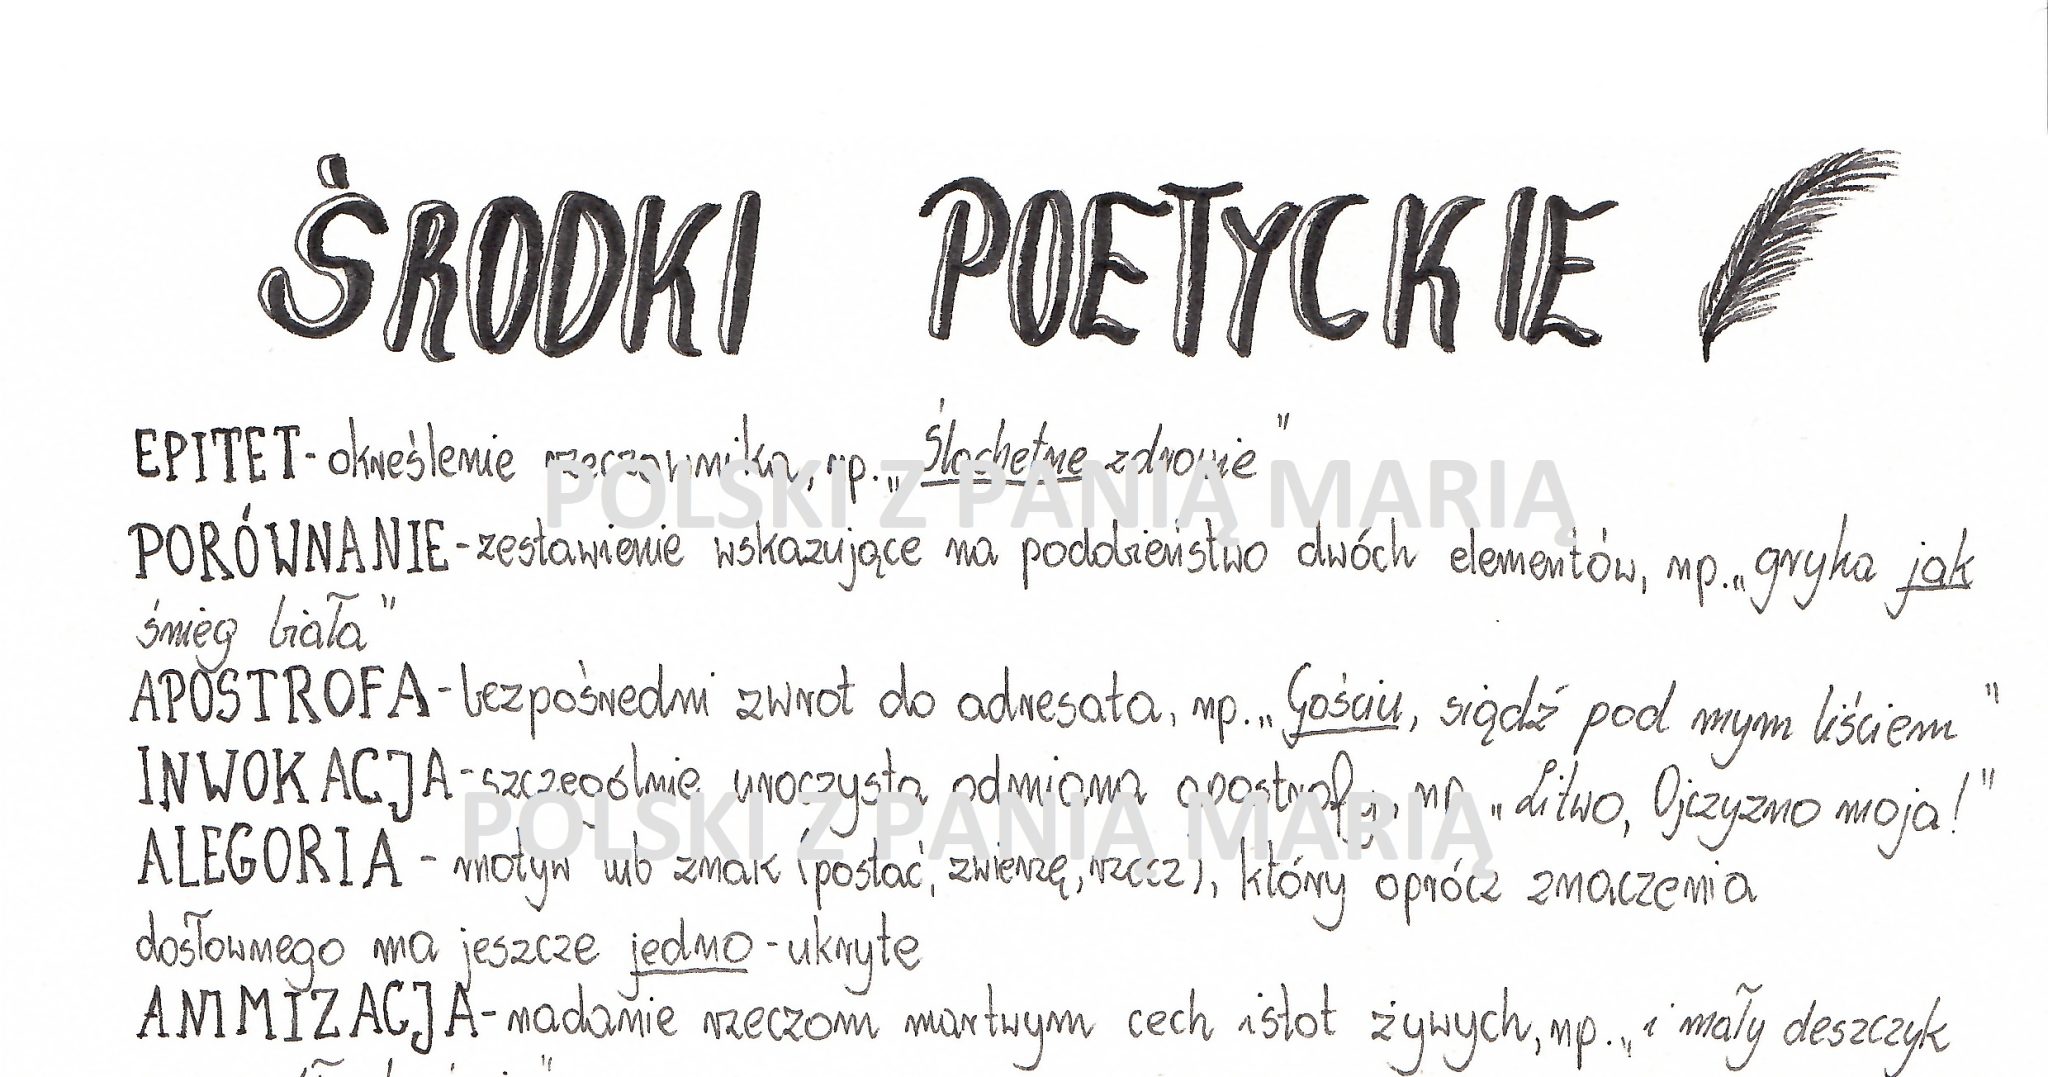 ŚRODKI POETYCKIE
EPITET - określenie rzeczownika, np. „Ślachetne zdrowie”
POLSKI Z PANIĄ MARIĄ
PORÓWNANIE - zestawienie wskazujące na podobieństwo dwóch elementów, np. „gryka jak
śnieg biała”
APOSTROFA - bezpośredni zwrot do adresata, np. „Gościu, siądź pod mym liściem”
INWOKACJA - szczególnie uroczysta odmiana apostrofy, np. „Litwo, Ojczyzno moja!”
POLSKI Z PANIĄ MARIĄ
ALEGORIA - motyw lub znak (postać, zwierzę, rzecz), który oprócz znaczenia
dosłownego ma jeszcze jedno - ukryte
ANIMIZACJA - nadanie rzeczom martwym cech istot żywych, np. „i mały deszczyk